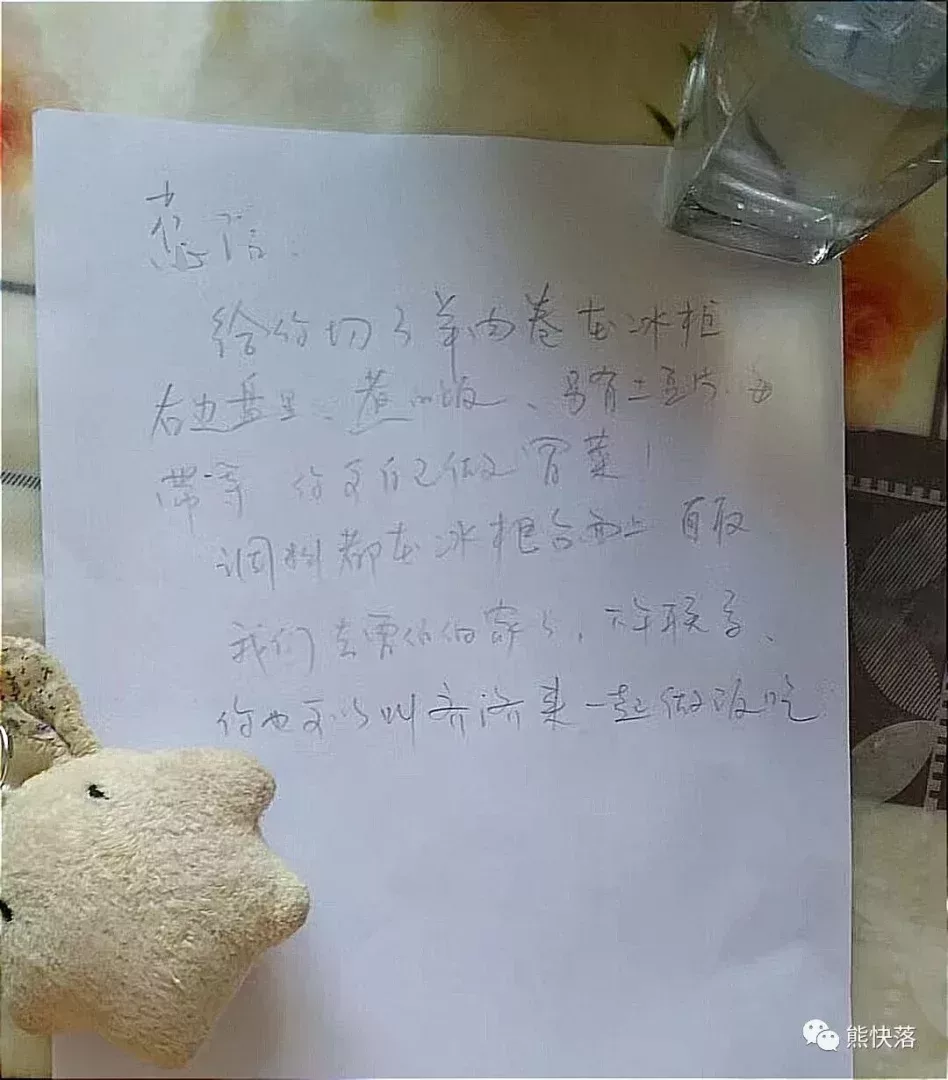 给你切了羊肉卷在冰柜
右边盘里、煮 饭、另有土豆片、
带等 你可自己做冒菜!
调料都在冰柜台面上 自取
我们去贾伯伯家了,下午联系、
你也可以叫齐济来一起做饭吃
熊快落